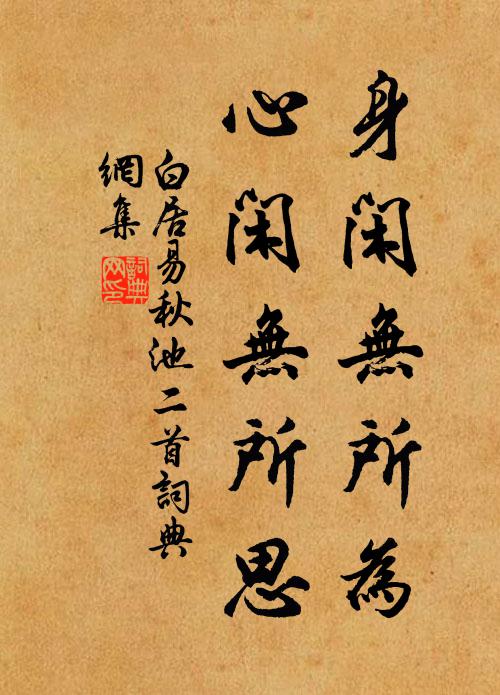 身閑無所為
心閑無所思
白居易秋池二首詞典
網集
詞典
网印